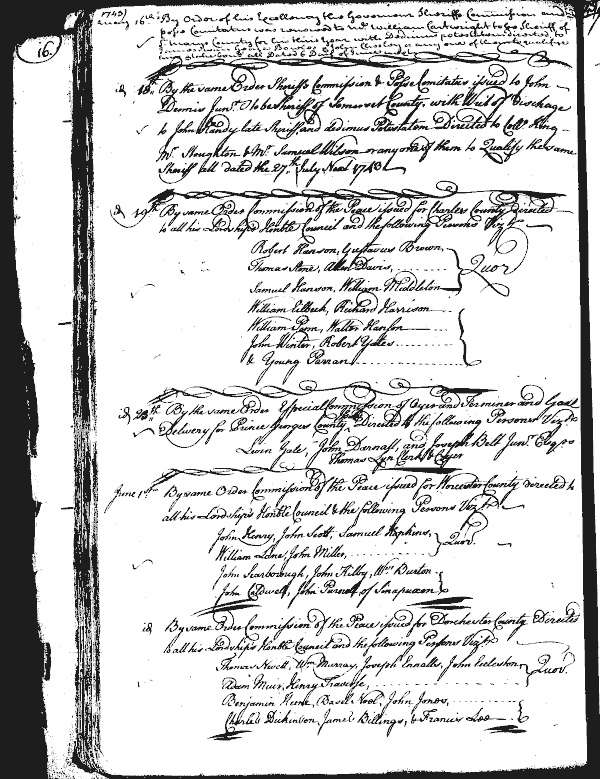 1743
16.
16th By Order of his Excellency the Governour Sheriffs Commission and
posse Comitatus was renewed to Mr William Cartwright to be Sheriff of
St marys County for his third year with Dedimus potestatem directed to
any one of them to Qualifie
18th By the same Order Sheriffs Commission & Posse Comitatus issued to John
Dennis Junr. to be Sheriff of Somerset County, with Writ of Discharge
to John Handy late Sheriff, and dedimus Potestatem Directed to Collo King
Mr. Stoughton & Mr. Samuel Wilson or any one of them to Qualify the same
Sheriff all Dated the 27th July Next 1743
19th By same Order Commission of the Peace issued for Charles County Directed
to all his Lordships Honble Council and the following Persons Vizt
Robert Hanson, Gustavus Brown,
Thomas Stone, Allen Davis,
Samuel Hanson, William Middleton
Quor
William Eilbeck, Richard Harrison
William Penn, Walter Hanson
John Winter, Robert Yates
& Young Parran
id By the same Order Especial Commission of Oyer and Terminer and Gaol
Delivery for Prince Georges County, Directed to the following Persons Vizt
Levin Gale, John Darnall, and Joseph Belt Junr. Esqrs
Thomas Clerk
June 1st By same Order Commission of the Peace issued for Worcester County directed to
all his Lordships Honble Council & the following Persons Vizt
John Henry, John Scott, Samuel Hopkins,
William Lane, John Miller,
Quor.
John Scarborough, John Kilby, Wm Burton
John Caldwell, John Purnell of Sinapuxon
id By same Order Commission of the Peace issued for Dorchester County Directed
to all his Lordships Honble Council and the following Persons Vizt
Thomas Nevett, Wm Murray, Joseph Ennalls, John Eccleston
Adam Muir, Henry Travers,
Quor.
Benjamin Keene, Basel Noel, John Jones,
Charles Dickinson, James Billings, & Francis Lee